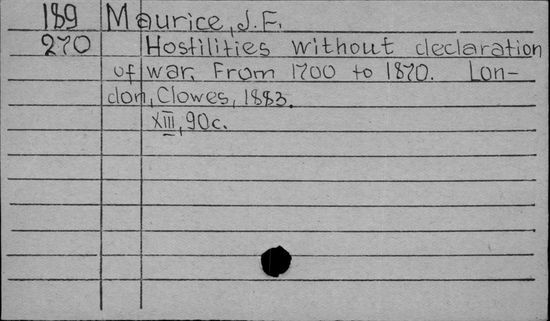 189 Maurice, J.F.
270 Hostilities without declaration
of war. From 1700 to 1870. Lon-
don, Clowes, 1883.
XIII, 90c.